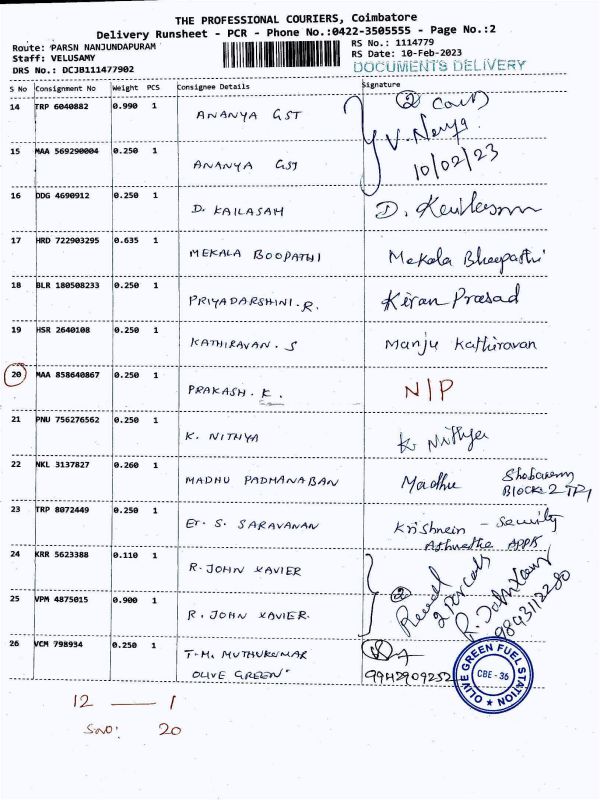 THE PROFESSIONAL COURIERS, Coimbatore
Delivery Runsheet - PCR - Phone No.:0422-3505555 - Page No.:2
Route: PARSN NANJUNDAPURAM
RS No.: 1114779
Staff: VELUSAMY
RS Date: 10-Feb-2023
DRS No.: DCJB111477902
DOCUMENTS DELIVERY
S No Consignment No Weight PCS Consignee Details Signature
14 TRP 6040882 0.990 1 ANANYA GST
15 MAA 569290004 0.250 1 ANANYA GST
10/02/23
16 DDG 4690912 0.250 1 D. KAILASAM
17 HRD 722903295 0.635 1 MEKALA BOOPATHI Mekala
18 BLR 180508233 0.250 1 PRIYADARSHINI.R. Kiran Prasad
19 HSR 2640108 0.250 1 KATHIRAVAN. S Manju Kathiravan
20 MAA 858640867 0.250 1 PRAKASH. K. N/P
21 PNU 756276562 0.250 1 K. NITHYA K Nithya
22 NKL 3137827 0.260 1 MADHU PADMANABAN Madhu
Block 2
23 TRP 8072449 0.250 1 Er. S. SARAVANAN - Security
24 KRR 5623388 0.110 1 R. JOHN XAVIER
25 VPM 4875015 0.900 1 R. JOHN XAVIER.
26 VCM 798934 0.250 1 T.M. MUTHUKUMAR
OLIVE GREEN" 9942909252
OLIVE GREEN FUEL STATION
CBE - 36
12 — 1
SNO: 20